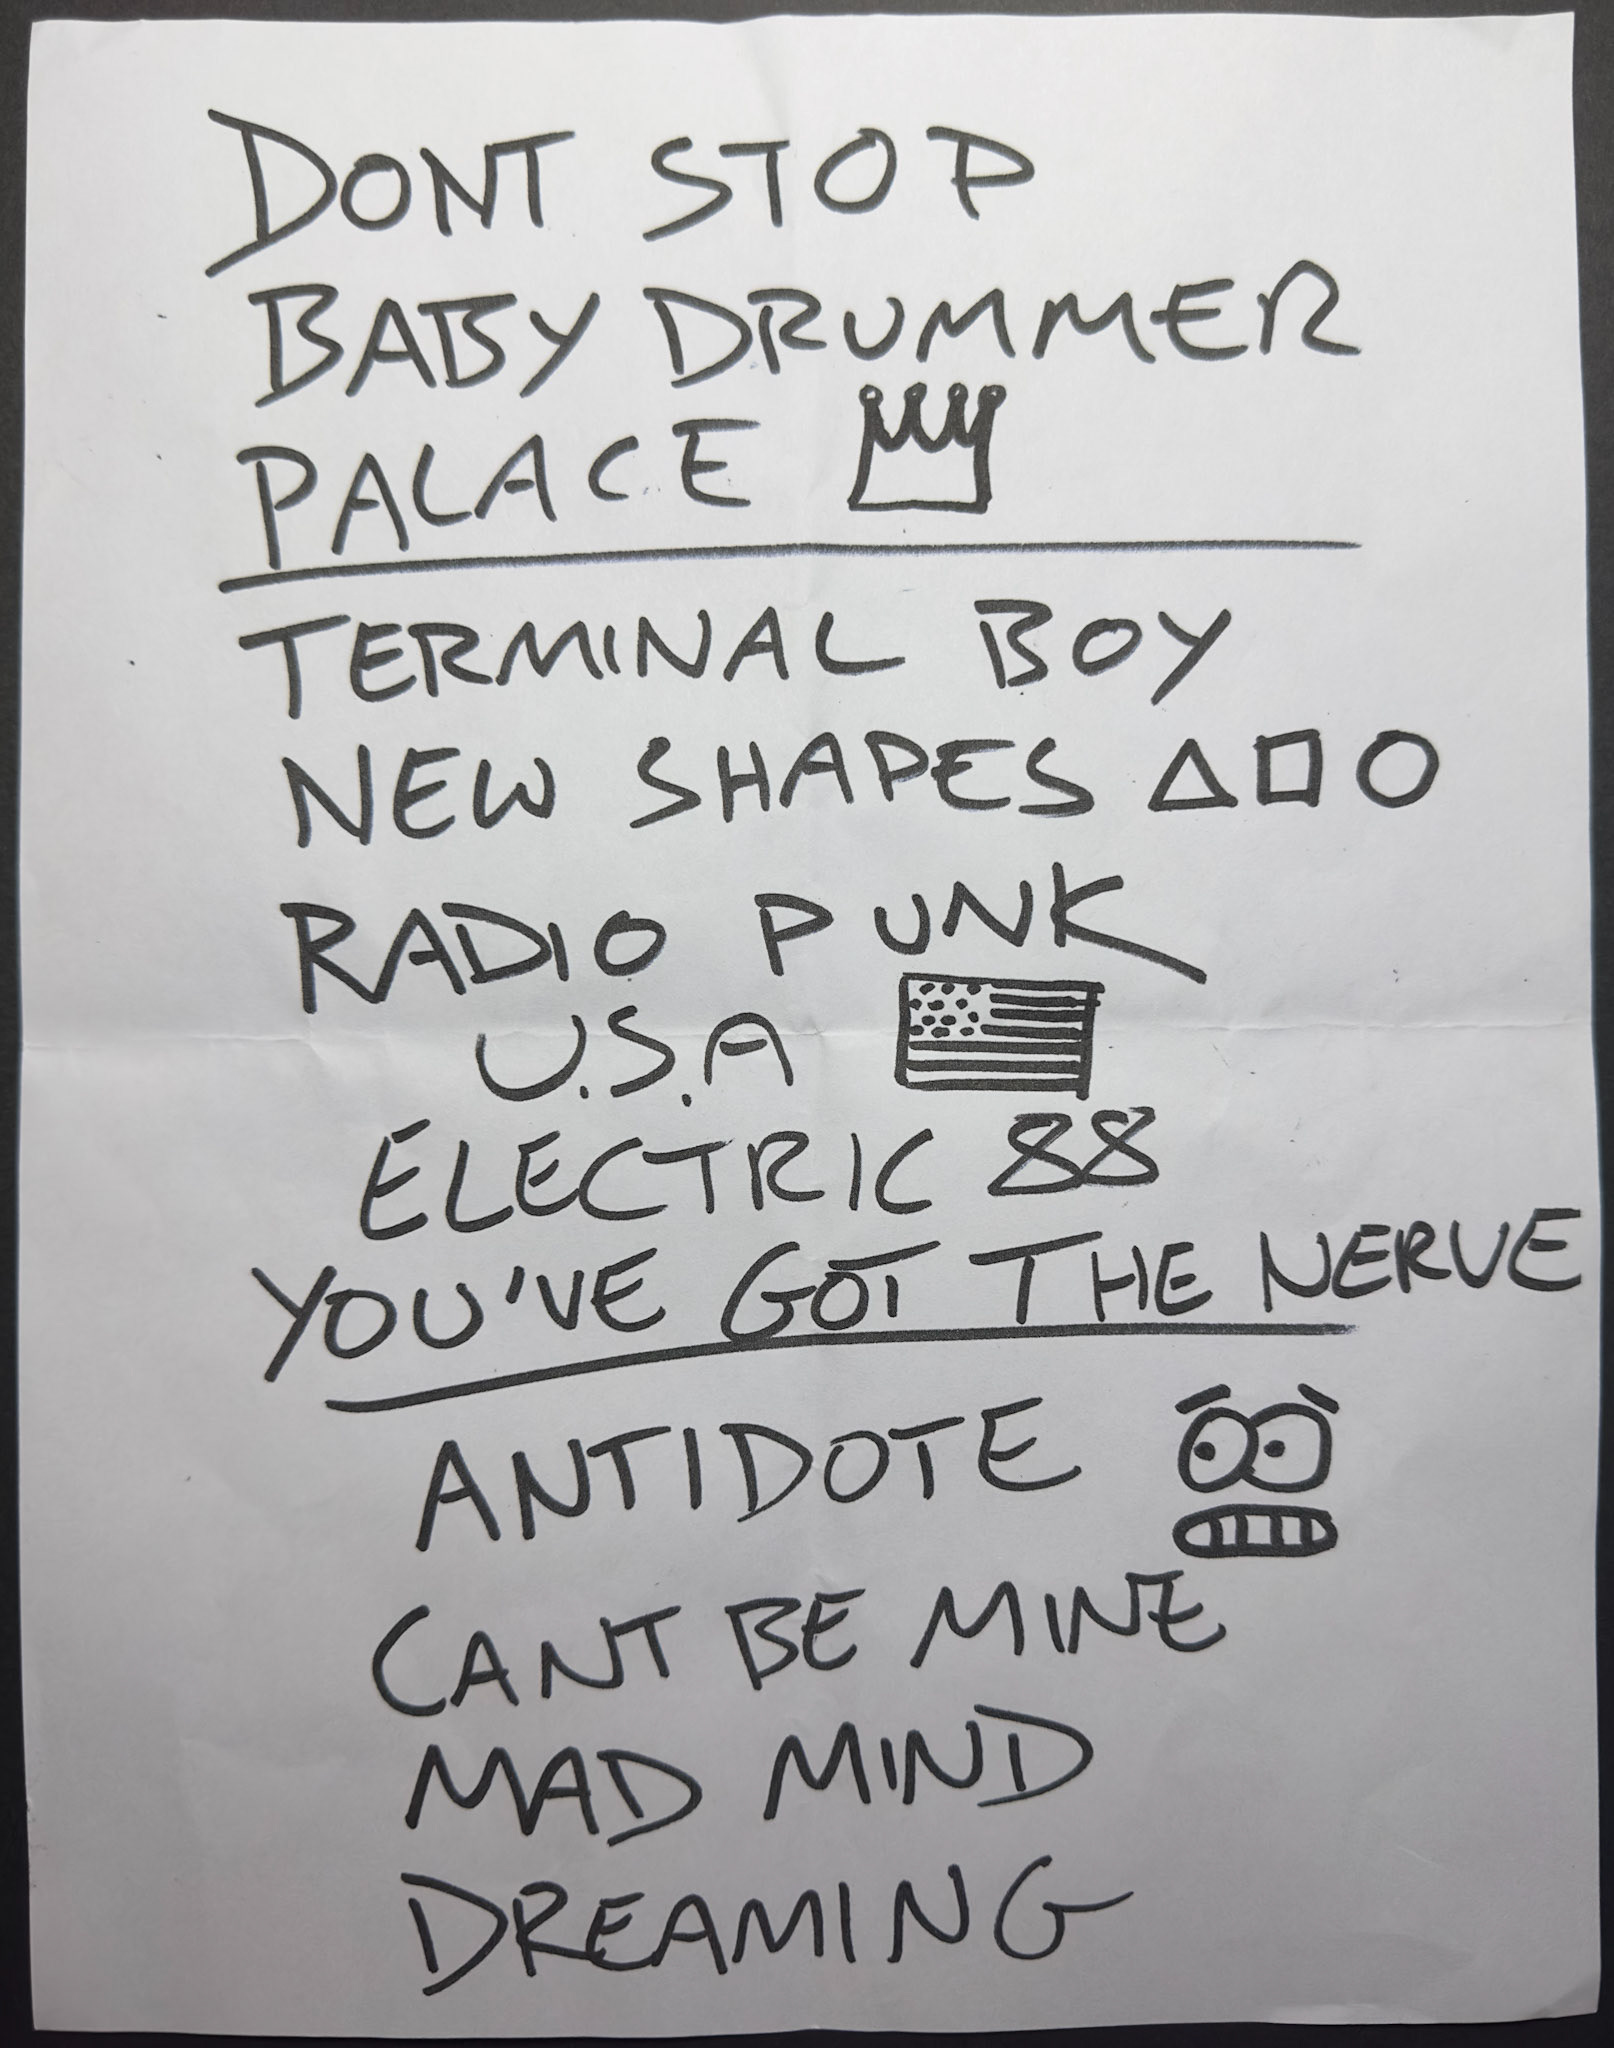 DONT STOP
BABY DRUMMER
PALACE
TERMINAL BOY
NEW SHAPES
RADIO PUNK
U.S.A
ELECTRIC 88
YOU'VE GOT THE NERVE
ANTIDOTE
CANT BE MINE
MAD MIND
DREAMING